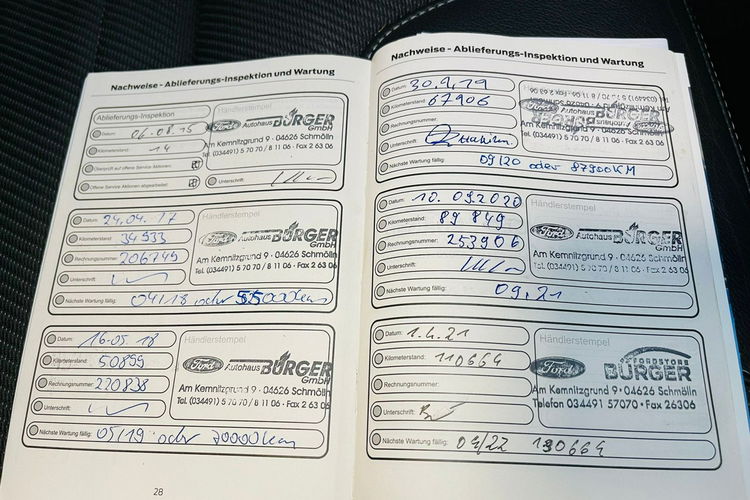 Nachweise - Ablieferungs-Inspektion und Wartung
Ablieferungs-Inspektion
Datum: 06.08.15
Kilometerstand: 14
Überprüft auf offene Service Aktionen
Offene Service Aktionen abgearbeitet
Händlerstempel
Ford Autohaus BÜRGER GmbH
Am Kemnitzgrund 9 · 04626 Schmölln
Tel. (034491) 5 70 70 / 8 11 06 · Fax 2 63 06
Unterschrift:
Datum: 24.04.17
Kilometerstand: 34933
Rechnungsnummer: 206749
Unterschrift:
Händlerstempel
Ford Autohaus BÜRGER GmbH
Am Kemnitzgrund 9 · 04626 Schmölln
Tel. (034491) 5 70 70 / 8 11 06 · Fax 2 63 06
Nächste Wartung fällig: 04/18 oder 55000km
Datum: 16.05.18
Kilometerstand: 50899
Rechnungsnummer: 220838
Unterschrift:
Händlerstempel
Ford Autohaus BÜRGER GmbH
Am Kemnitzgrund 9 · 04626 Schmölln
Tel. (034491) 5 70 70 / 8 11 06 · Fax 2 63 06
Nächste Wartung fällig: 05/19 oder 70000km
28
Nachweise - Ablieferungs-Inspektion und Wartung
Datum: 30.9.19
Kilometerstand: 67906
Rechnungsnummer:
Unterschrift:
Nächste Wartung fällig: 09/20 oder 87900KM
Datum: 10.09.2020
Kilometerstand: 89849
Rechnungsnummer: 253906
Unterschrift:
Händlerstempel
Ford Autohaus BÜRGER GmbH
Am Kemnitzgrund 9 · 04626 Schmölln
Tel. (034491) 5 70 70 / 8 11 06 · Fax 2 63 06
Nächste Wartung fällig: 09.21
Datum: 1.4.21
Kilometerstand: 110664
Rechnungsnummer:
Unterschrift:
Händlerstempel
Ford FORDSTORE BÜRGER
Am Kemnitzgrund 9 · 04626 Schmölln
Telefon 034491 57070 · Fax 26306
Nächste Wartung fällig: 04/22 130664